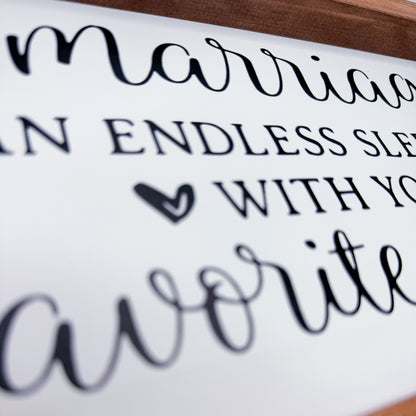 marriag
AN ENDLESS SLE
WITH YO
favorite